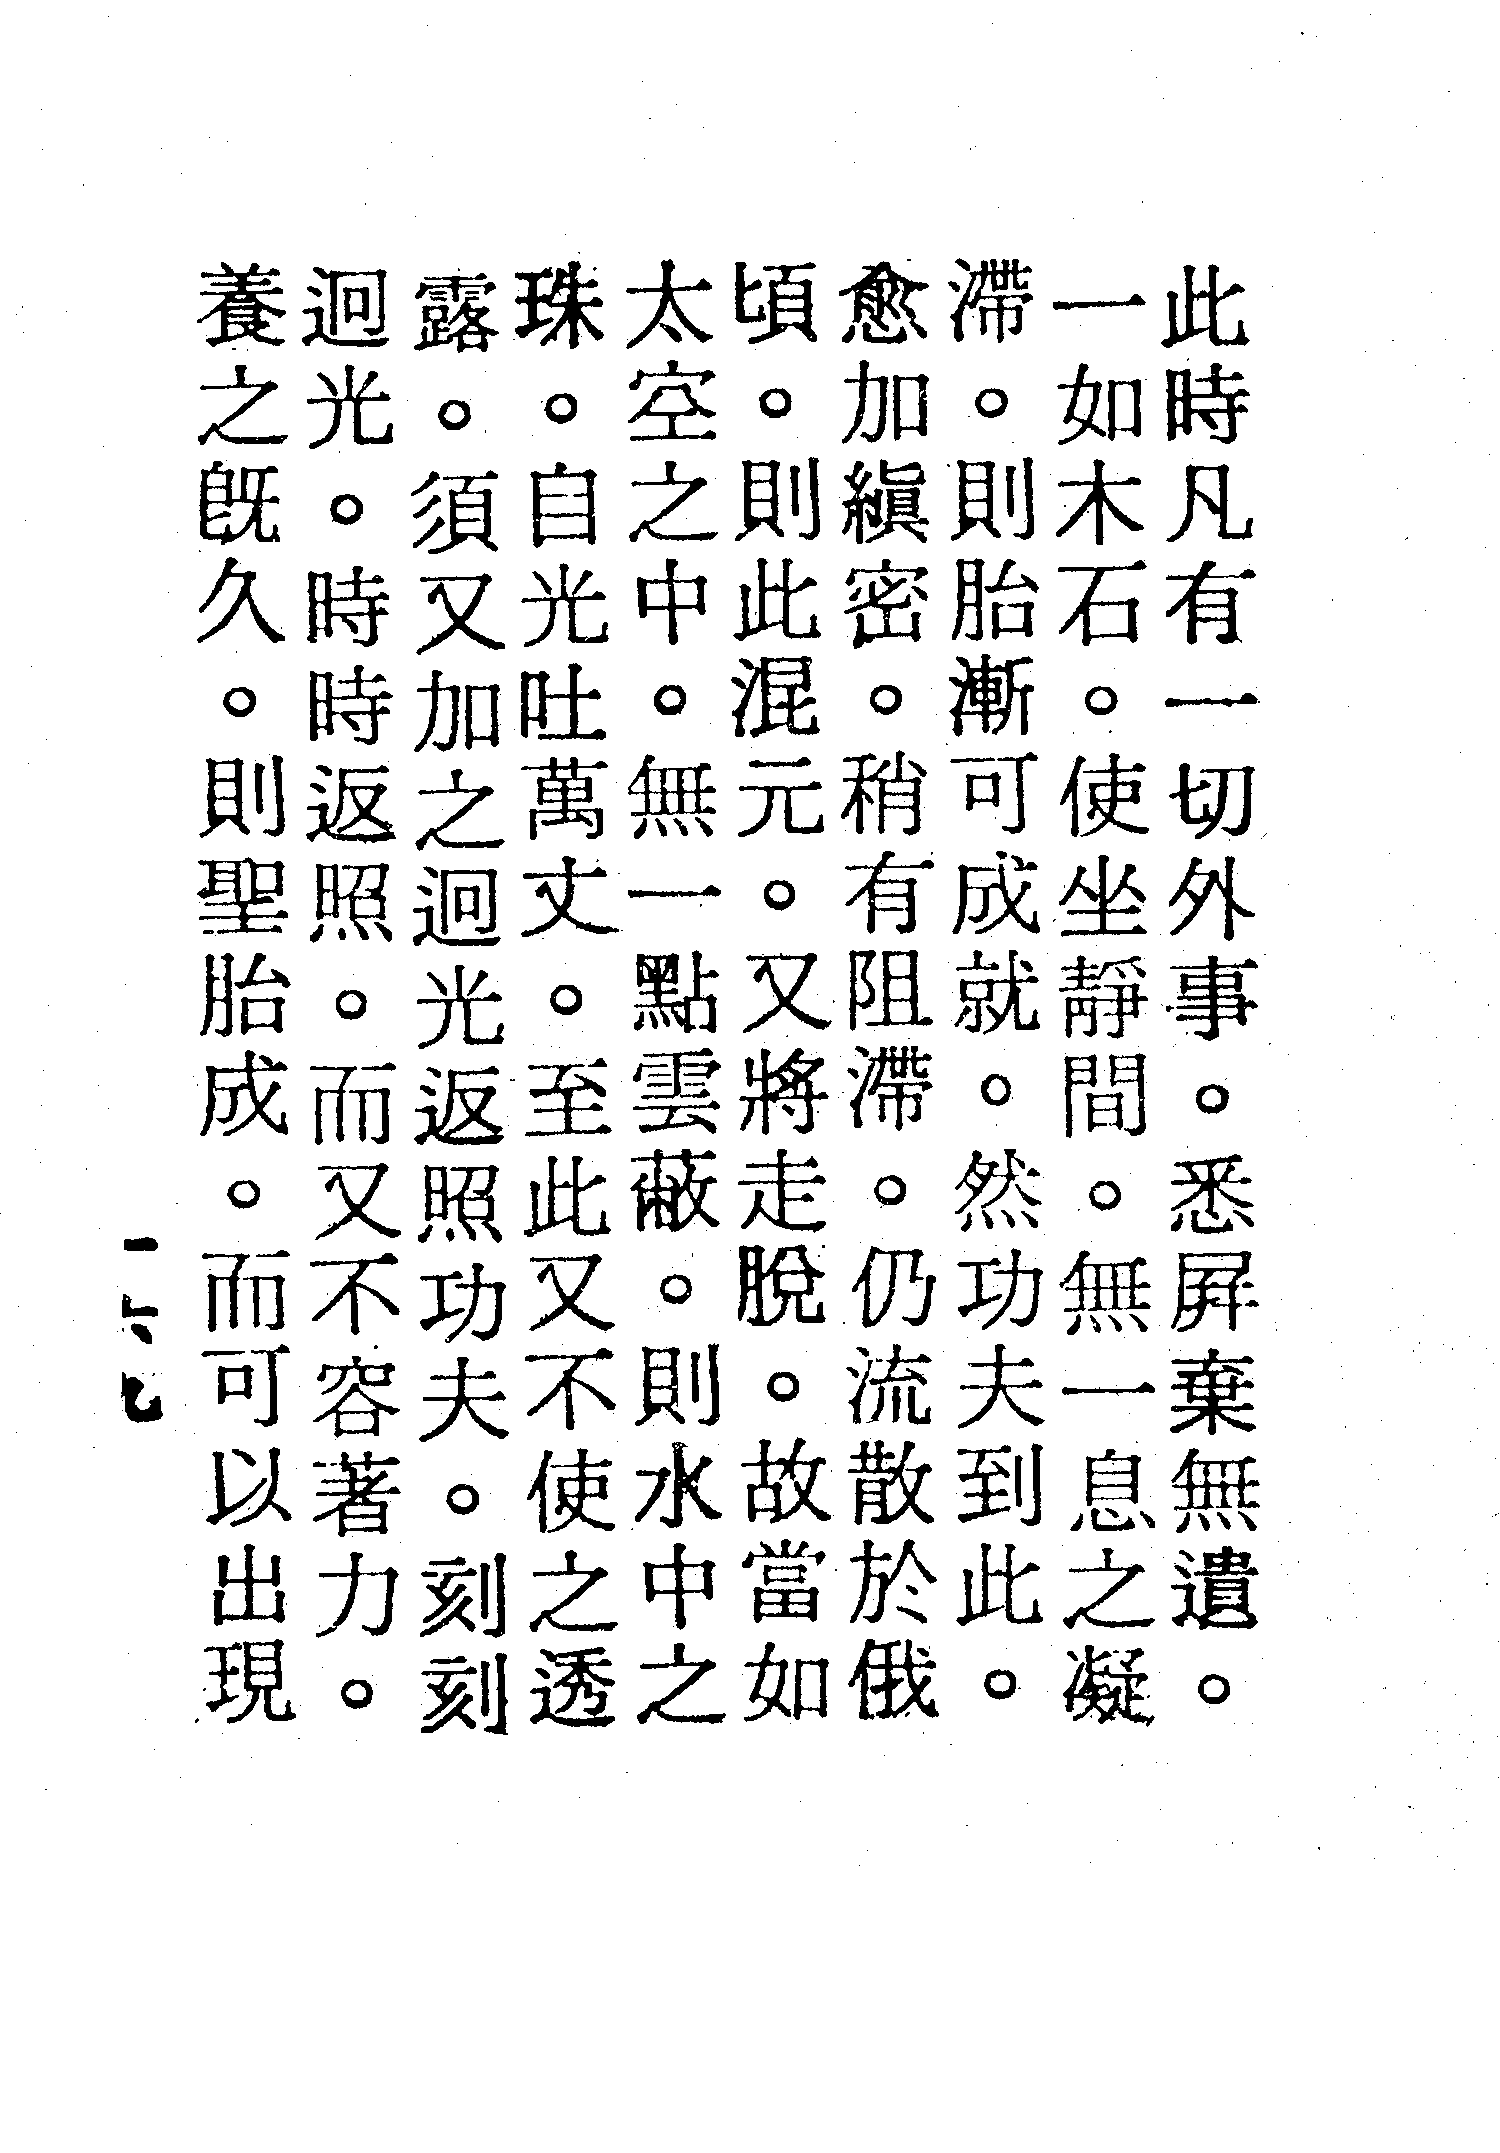 此時凡有一切外事。悉屛棄無遺。
一如木石。使坐靜間。無一息之凝
滯。則胎漸可成就。然功夫到此。
愈加縝密。稍有阻滯。仍流散於俄
頃。則此混元。又將走脫。故當如
太空之中。無一點雲蔽。則水中之
珠。自光吐萬丈。至此又不使之透
露。須又加之迥光返照功夫。刻刻
迥光。時時返照。而又不容著力。
養之旣久。則聖胎成。而可以出現